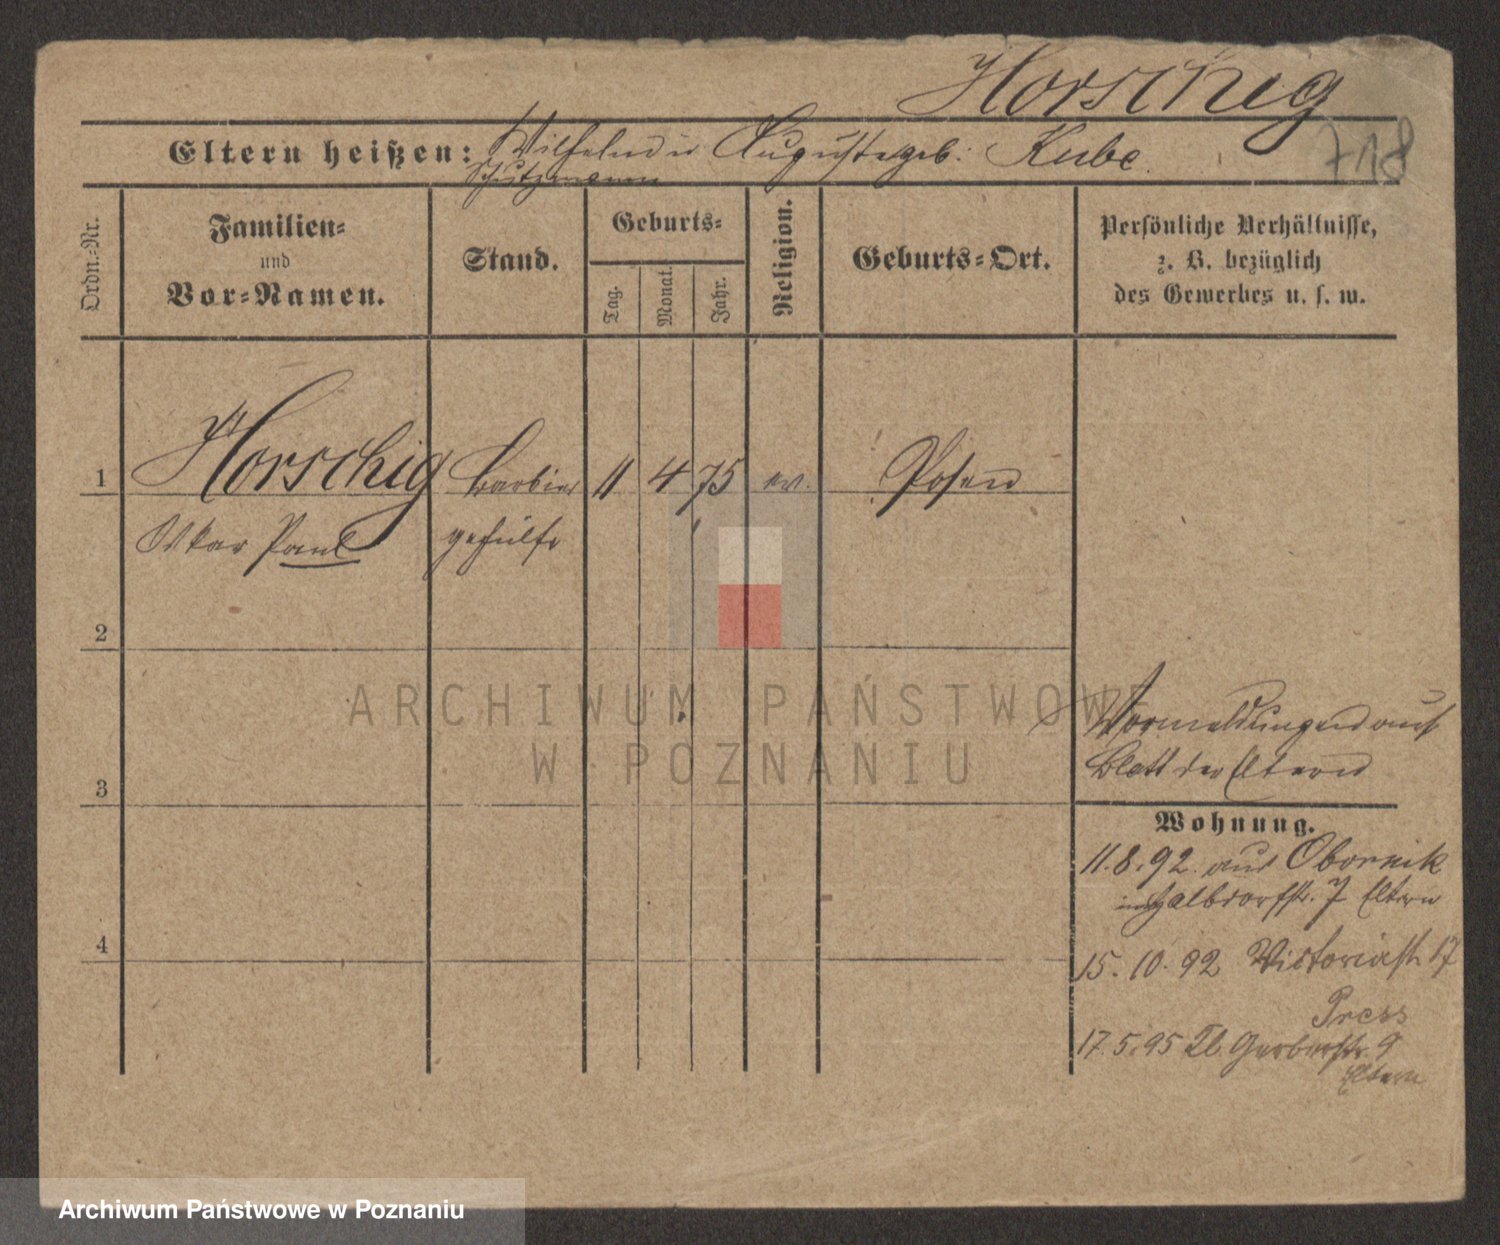 Horschig
718
Eltern heißen: Wilhelm u Auguste geb. Kube.
Schutzmann
Ordn.-Nr.
Familien-
und
Vor-Namen.
Stand.
Geburts-
Tag.
Monat.
Jahr.
Religion.
Geburts-Ort.
Persönliche Verhältnisse,
z. B. bezüglich
des Gewerbes u. s. w.
1 Horschig Barbier 11 4 75 ev. Posen
Oskar Paul gehülfe
2
ARCHIWUM PAŃSTWOWE
W POZNANIU
Vormeldungen auf
Blatt der Eltern
3
Wohnung.
11.8.92. aus Obornik
Halbdorfstr. 7 Eltern
4
15.10.92 Victoriastr. 17
Press
17.5.95 Kl. Gerberstr. 9
Eltern
Archiwum Państwowe w Poznaniu